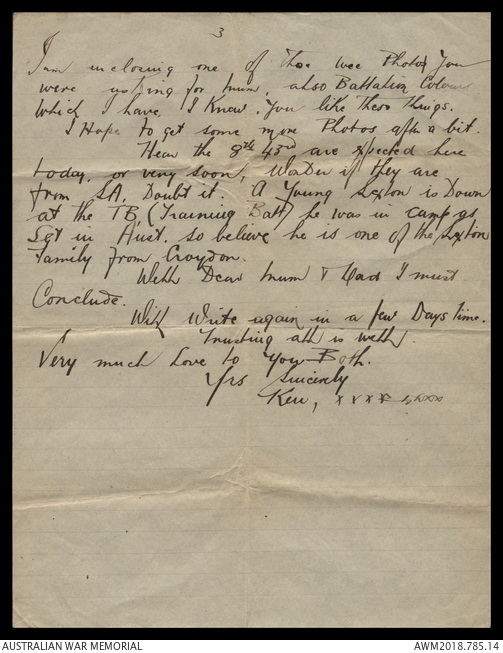 3
I am inclosing one of those wee Photos You
were asking for mum, also Battalion Colour
Which I have. I Know. You like These Things.
I Hope to get some more Photos after a bit.
Hear the 8th 43rd are xpected here
today, or very soon, Wonder if they are
from S.A. Doubt it. A Young Sexton is Down
at the TB, (Training Batt) he was in camp as
Sgt in Aust. so believe he is one of the Sexton
Family from Croydon.
Well Dear Mum & Dad I must
Conclude.
Will Write again in a few Days Time.
Trusting all is well.
Very much Love to You Both.
Yrs Sincerely
Ken, x x x x x xxx
AUSTRALIAN WAR MEMORIAL
AWM2018.785.14